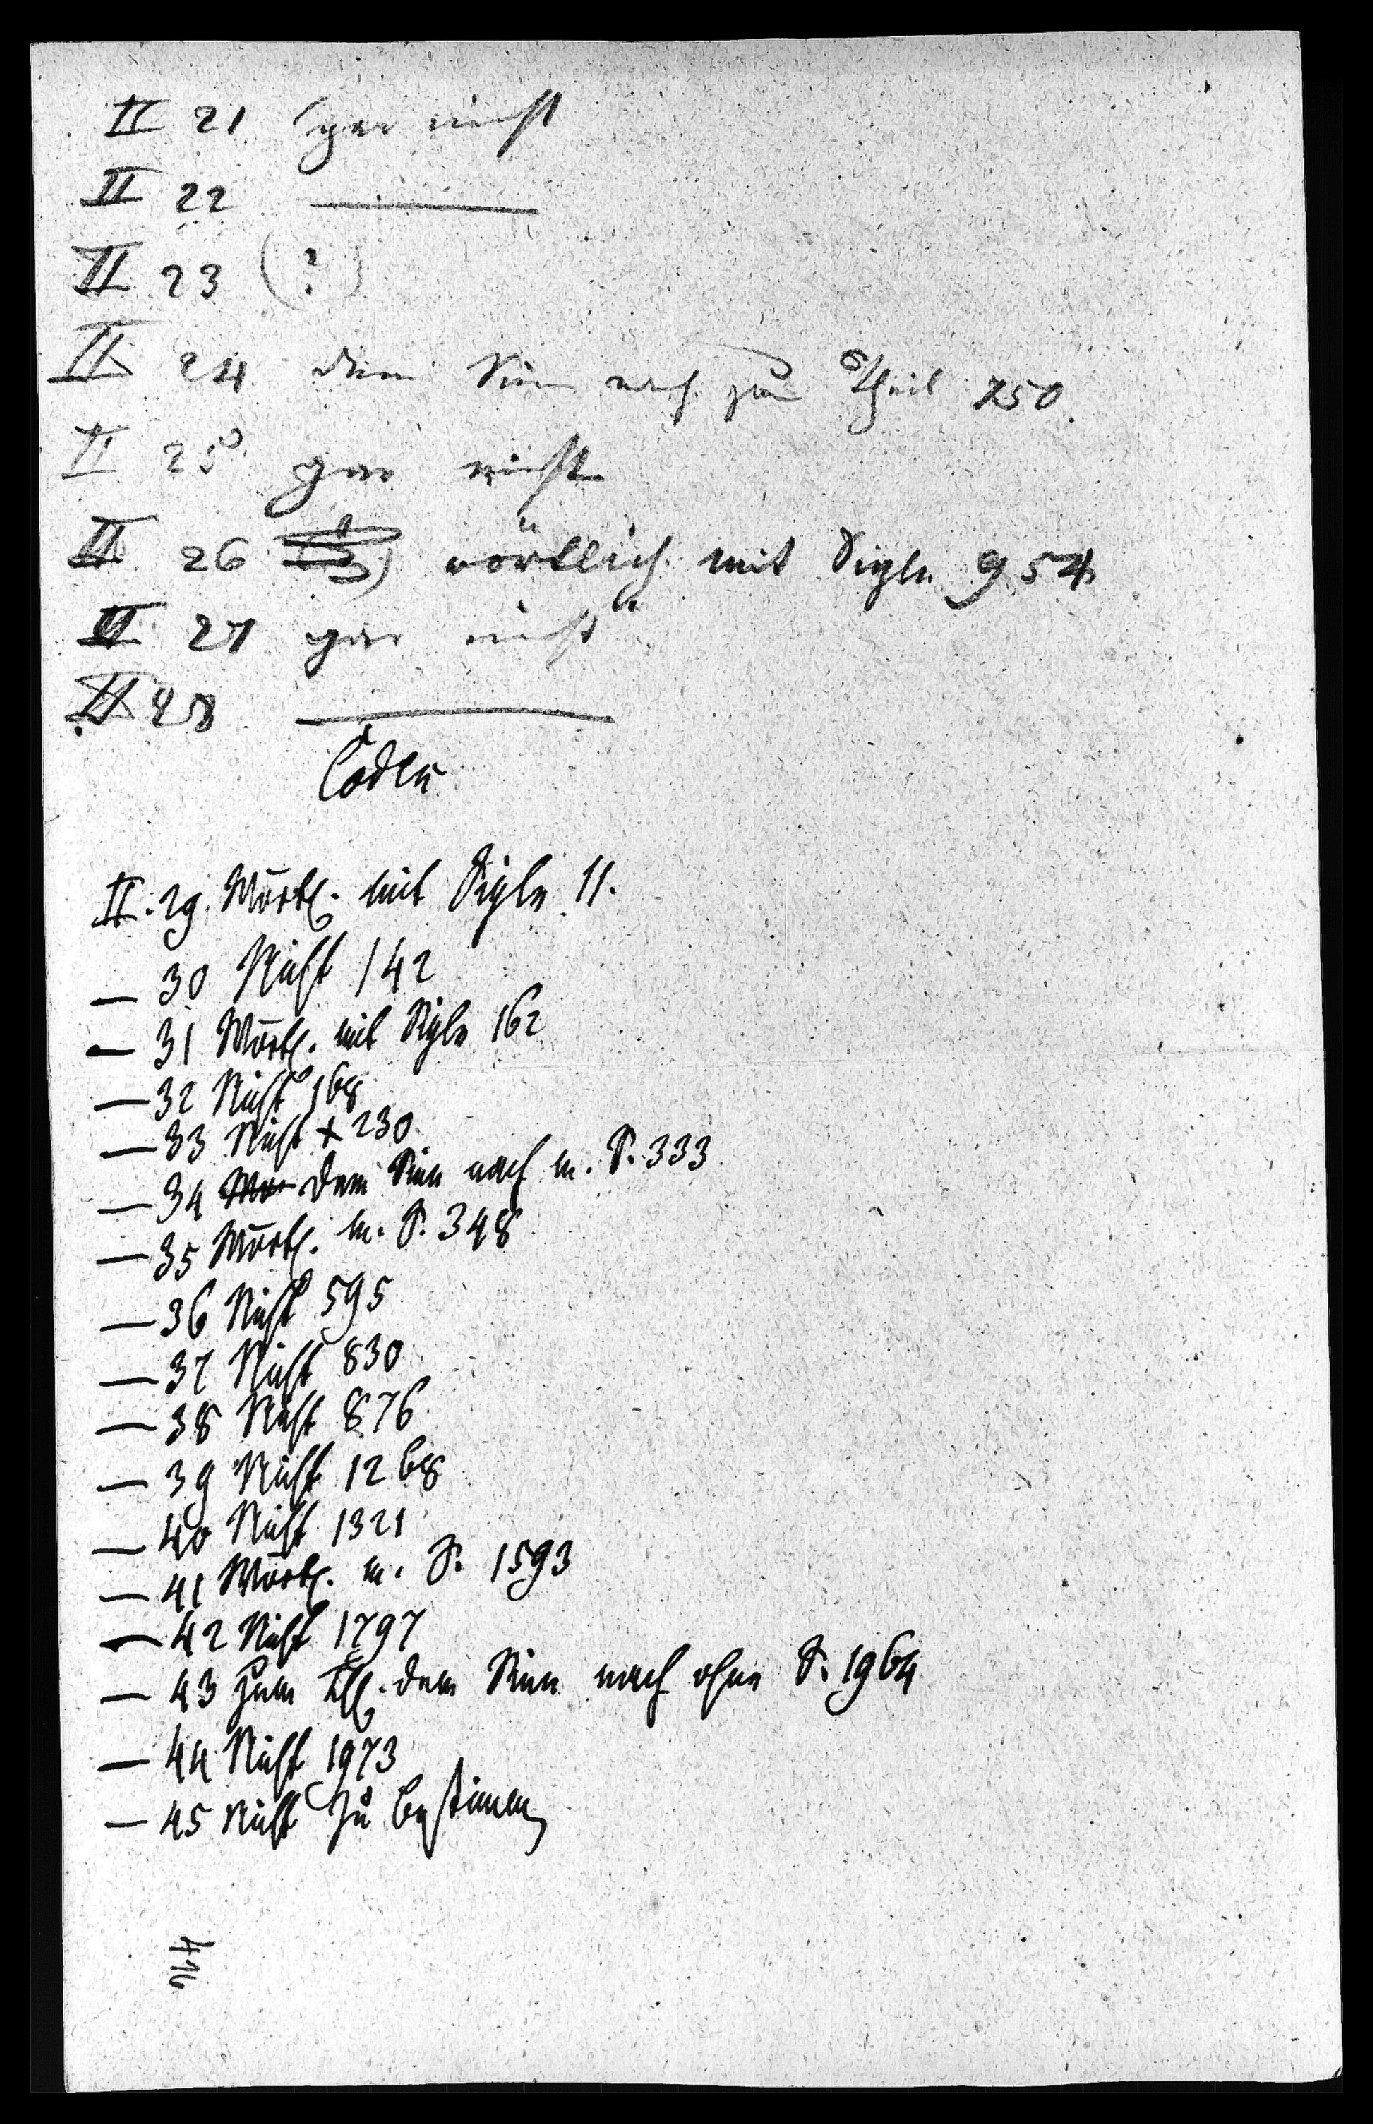 II 21 gar nicht
II 22 ———
II 23 (?)
II 24 dem Sinn nach zum Theil 750.
II 25 gar nicht
II 26 wörtlich mit Sigle 954
II 27 gar nicht
II 28 ———
II. 29. Wörtl. mit Sigle 11.
— 30 Nicht 142
— 31 Wörtl. mit Sigle 162
— 32 Nicht 168
— 33 Nicht + 230
— 34 Wö dem Sinn nach m. S. 333
— 35 Wörtl. m. S. 348
— 36 Nicht 595
— 37 Nicht 830
— 38 Nicht 876
— 39 Nicht 1268
— 40 Nicht 1321
— 41 Wörtl. m. S. 1593
— 42 Nicht 1797
— 43 zum Thl. dem Sinn nach ohne S. 1964
— 44 Nicht 1973
— 45 Nicht zu bestimmen
416